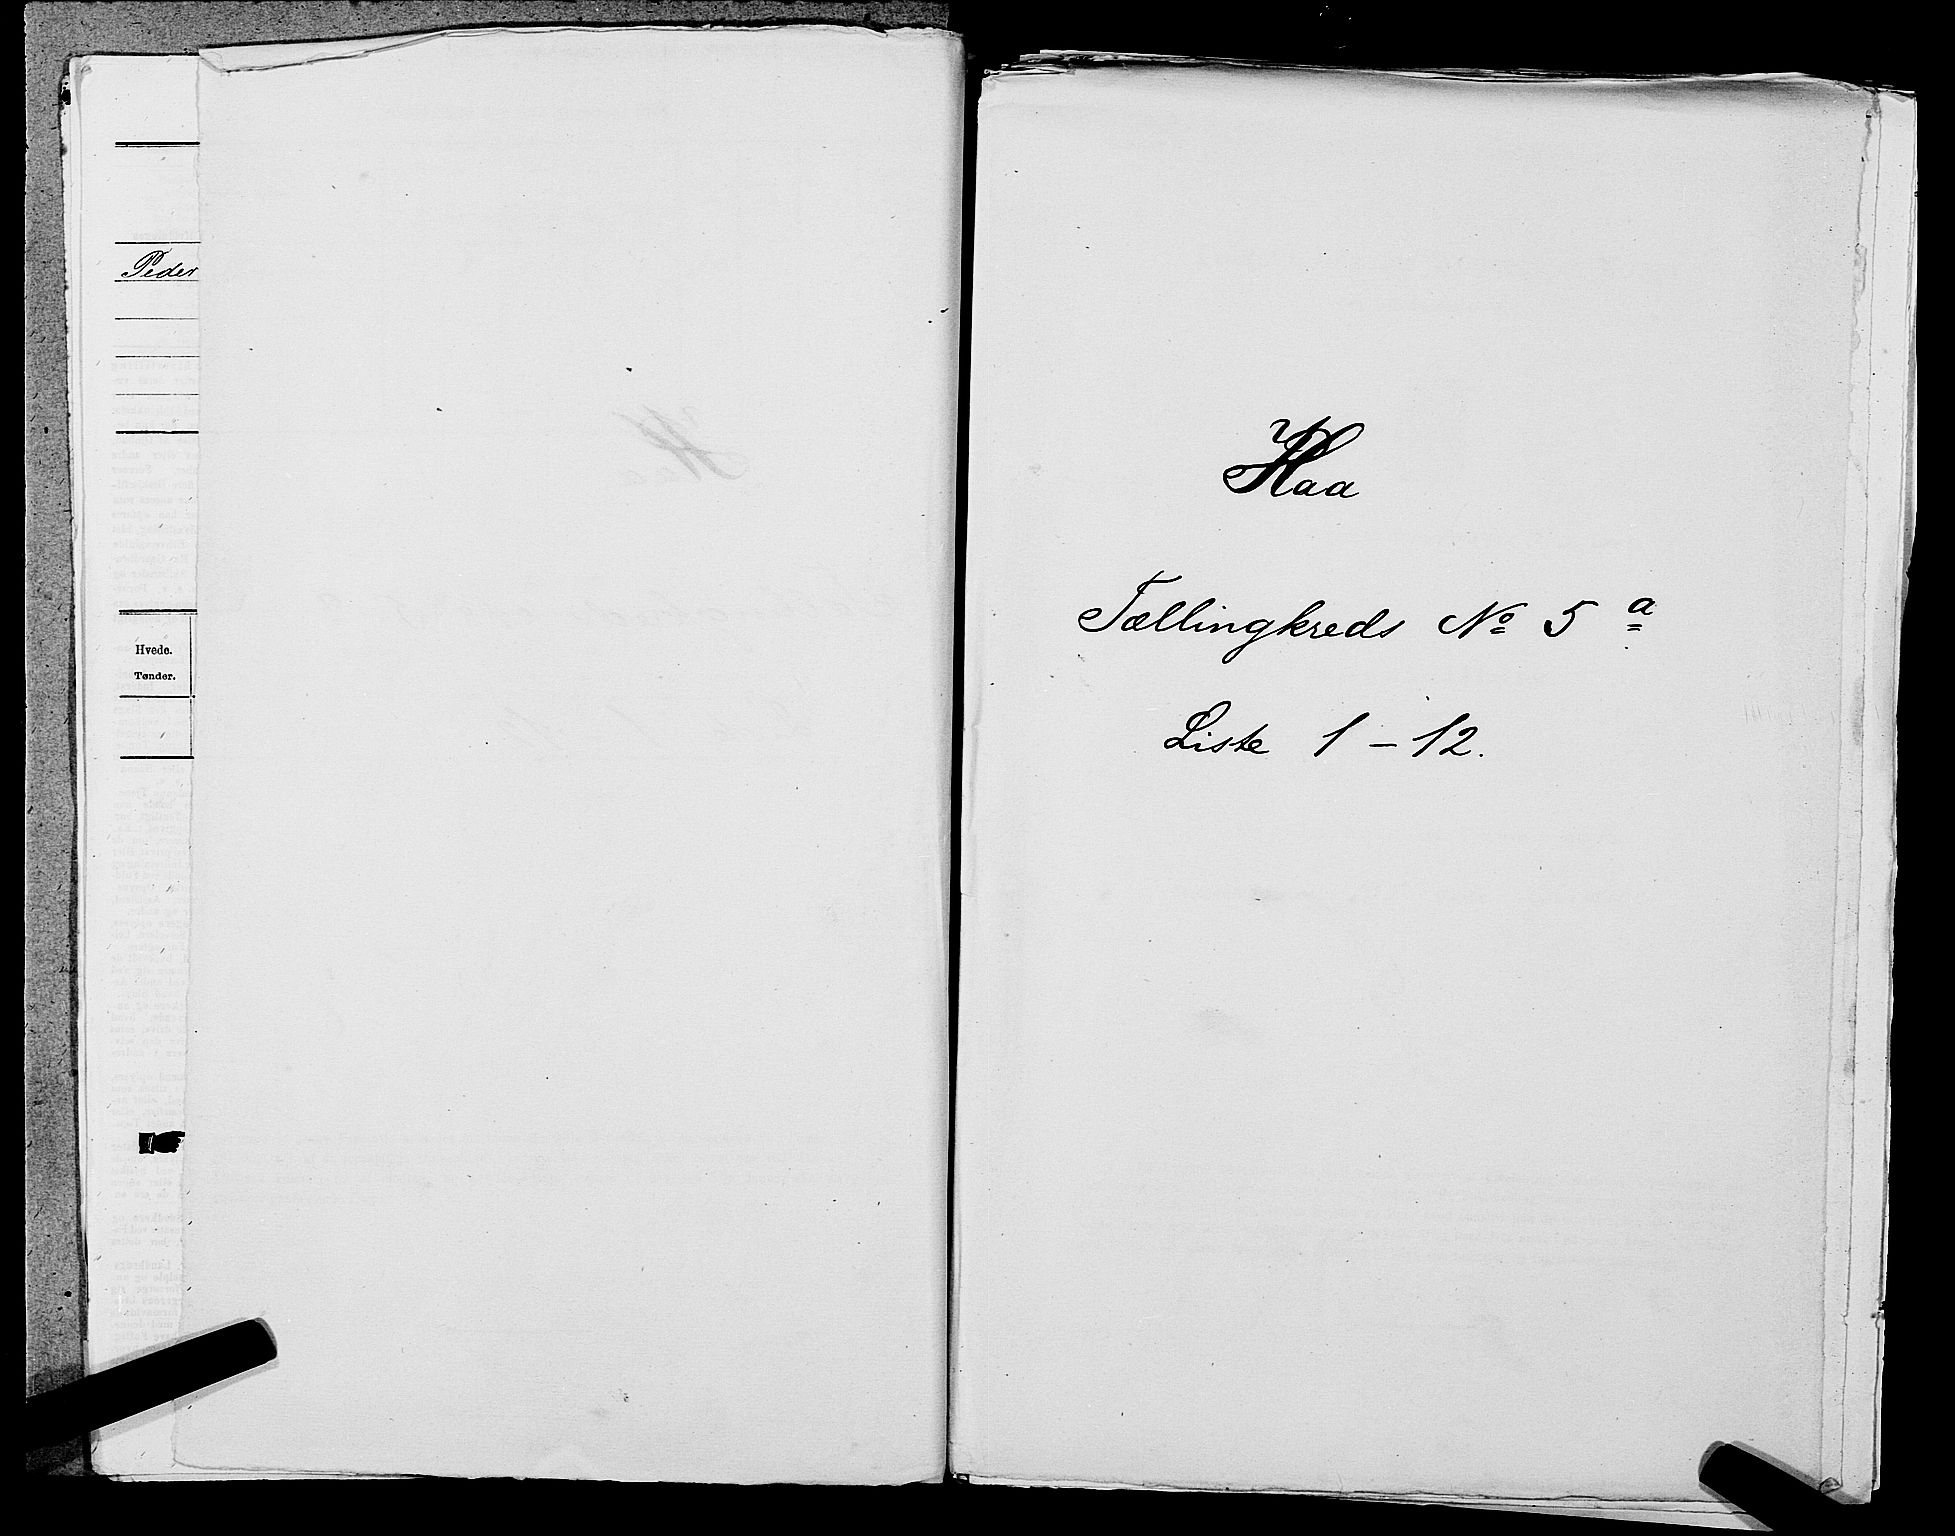 Peder
Hvede.
Tønder.
Haa
Tællingkreds No 5 a
Liste 1 - 12.